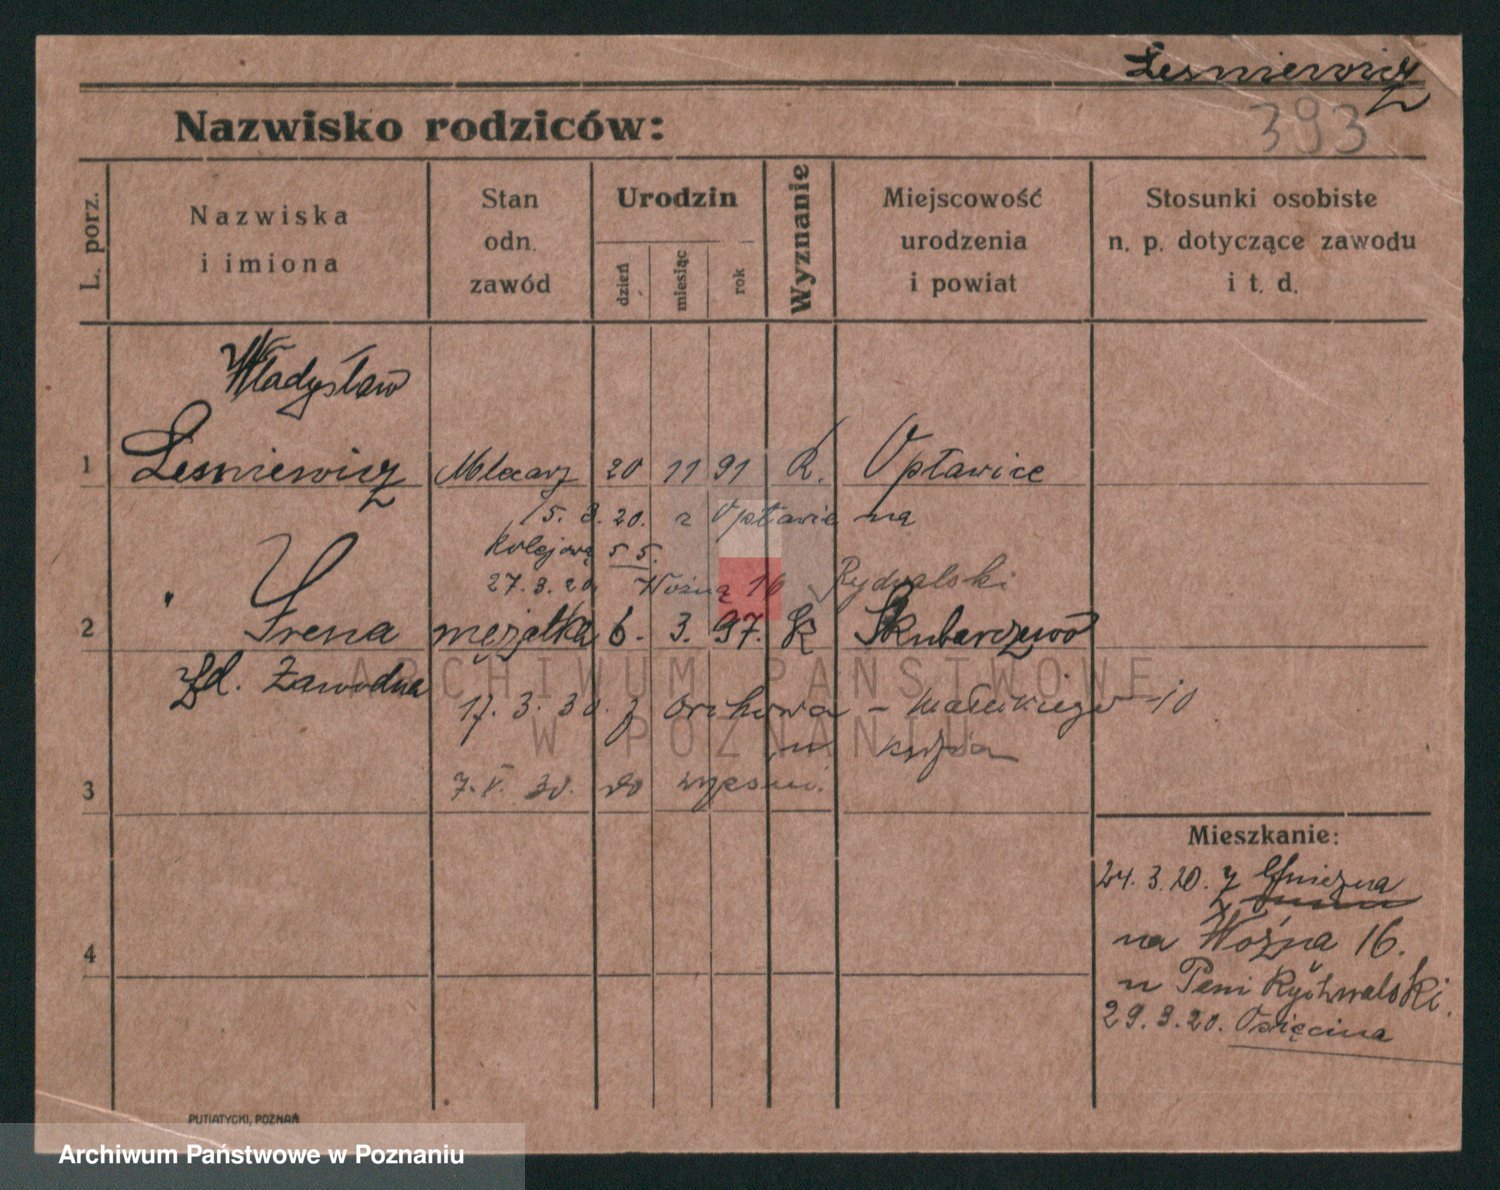 Leśniewicz
393
Nazwisko rodziców:
L. porz.
Nazwiska
i imiona
Stan
odn.
zawód
Urodzin
dzień
miesiąc
rok
Wyznanie
Miejscowość
urodzenia
i powiat
Stosunki osobiste
n. p. dotyczące zawodu
i t. d.
Władysław
1 Leśniewicz Mlecarz 20 11 91 R. Opławice
15. 3. 20. z Opławic na
Kolejową 55.
27. 3. 20. Woźną 16
2 Irena mężatka 6. 3. 97. K
Zawodna
17. 3. 30. z - Małeckiego 10
u
3 7. V. 30. do Wrześni.
Mieszkanie:
24. 3. 20. z Gniezna
na Woźna 16.
u Pani Rychwalski.
29. 3. 20. Osięcina
4
PUTIATYCKI, POZNAŃ
ARCHIWUM PAŃSTWOWE
W POZNANIU
Archiwum Państwowe w Poznaniu